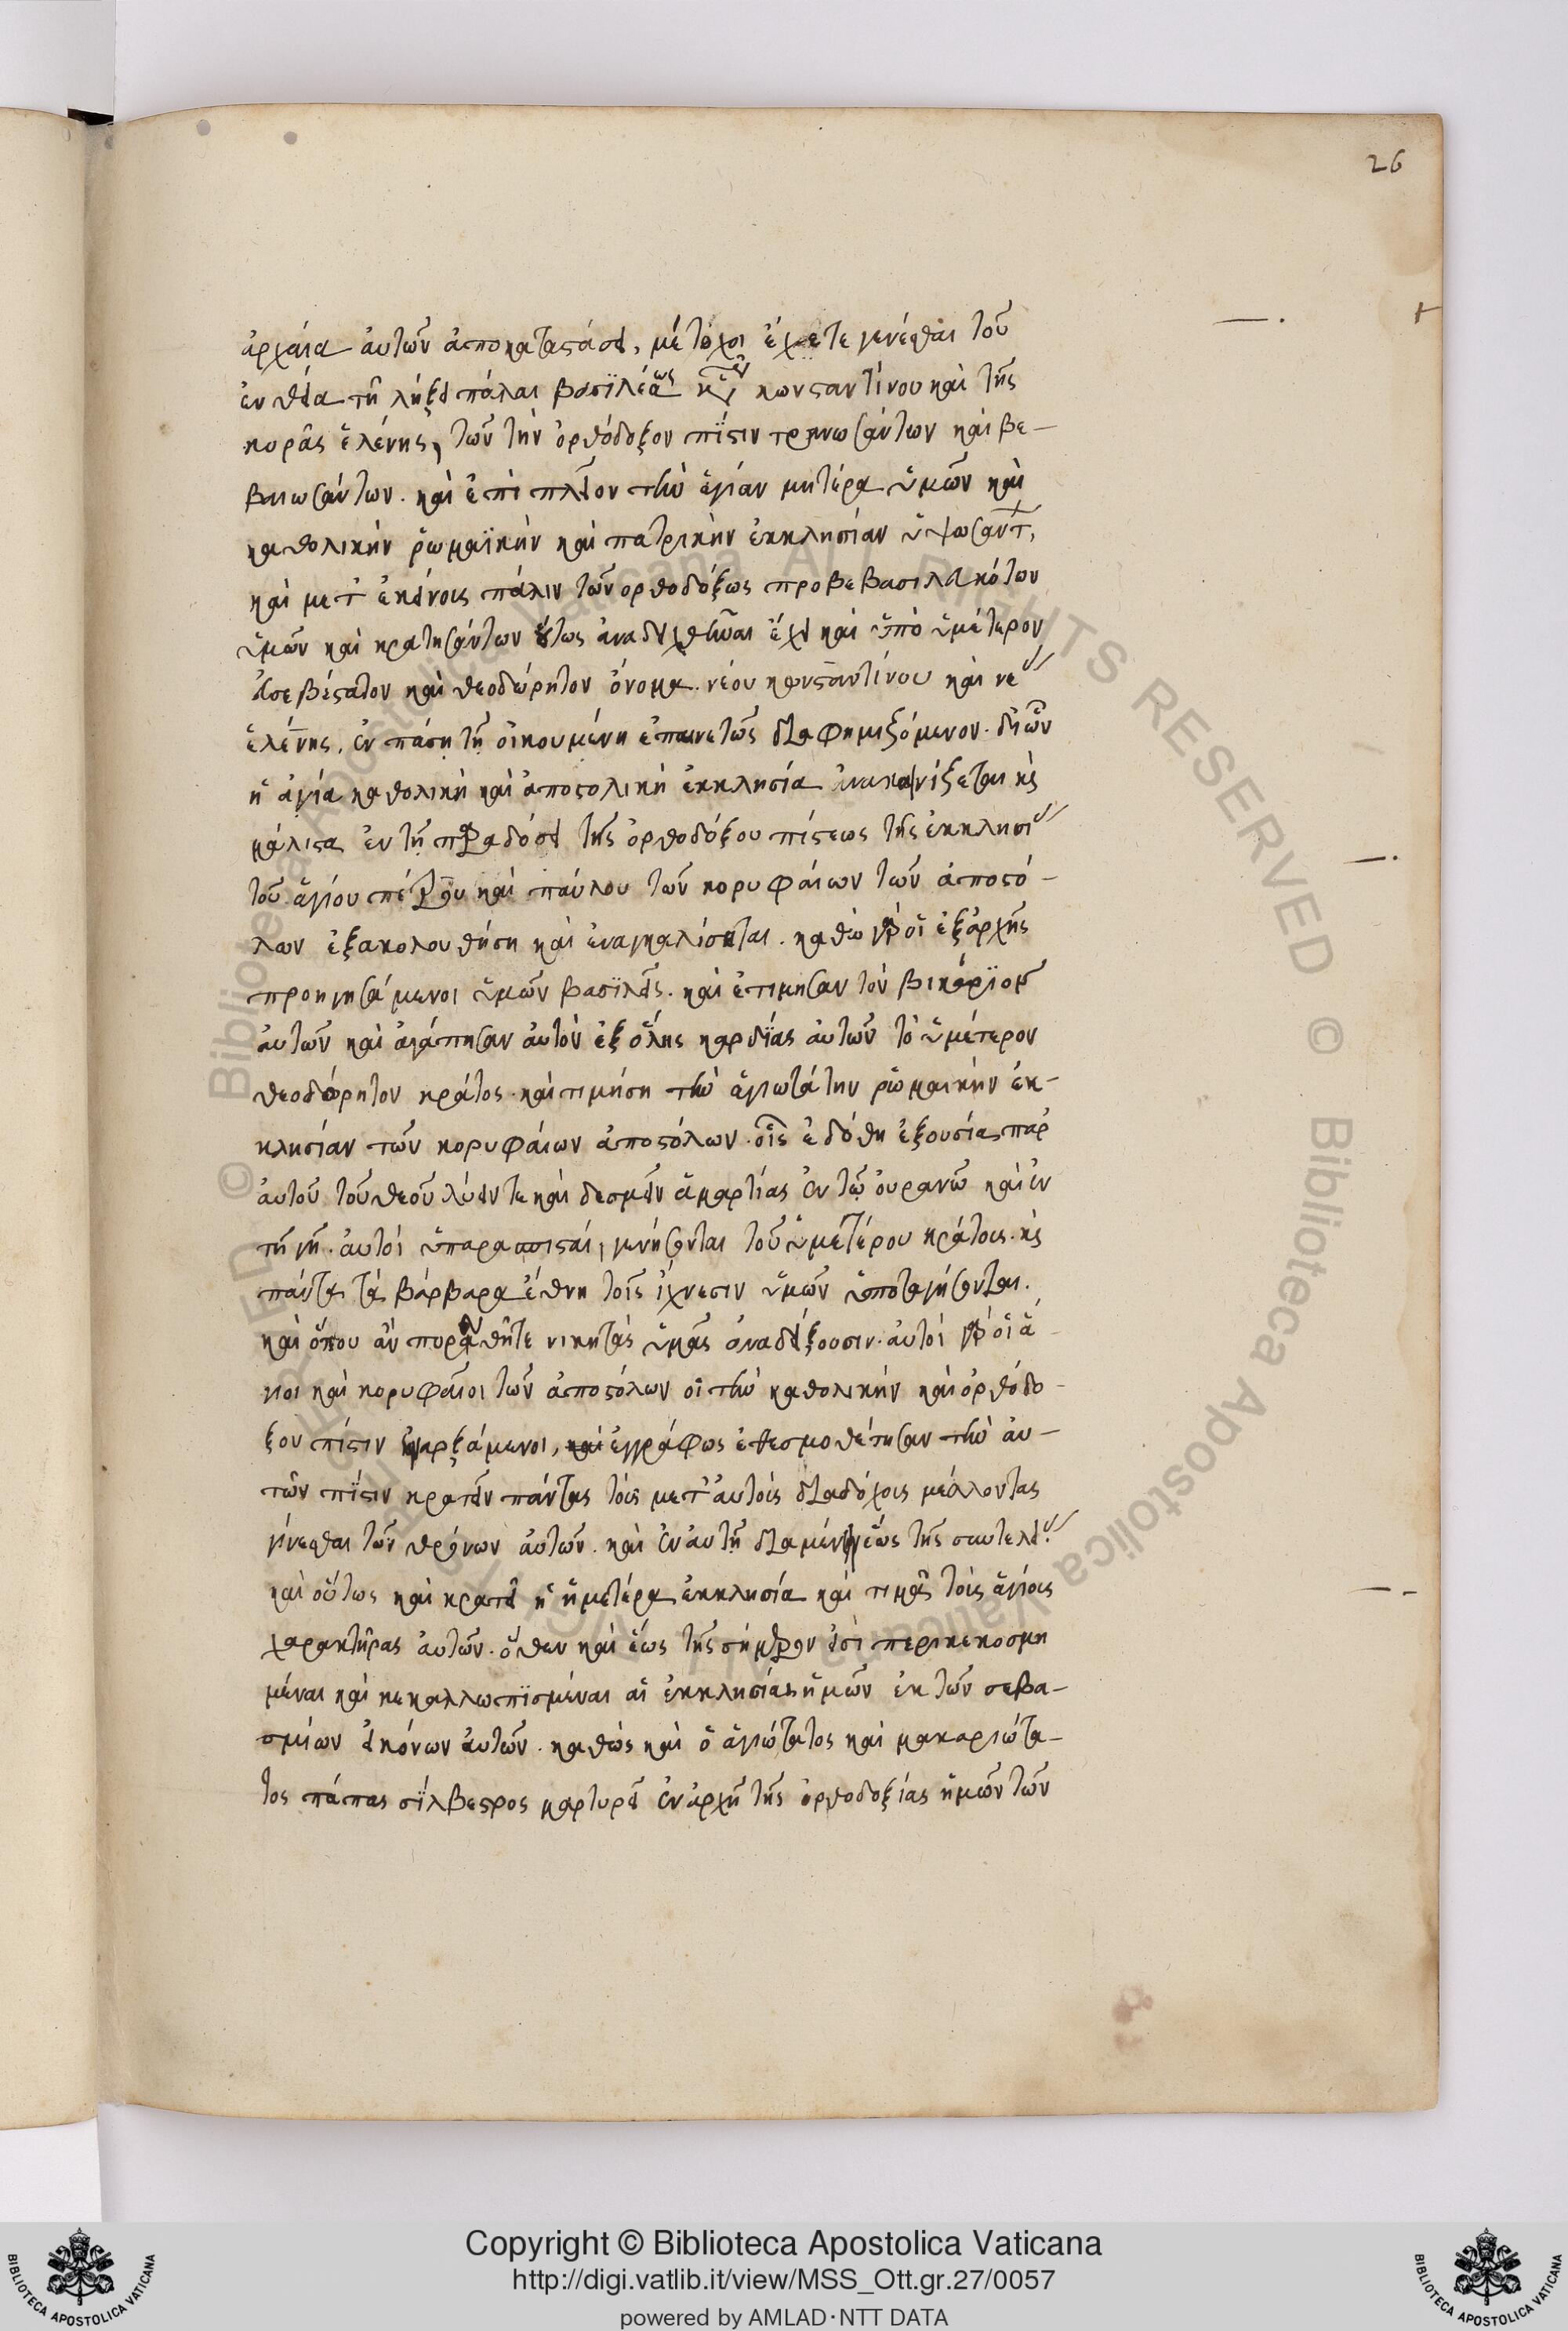 26
ἀρχάια ἀυτῶν ἀποκαταςάσει, μέτοχοι ἔχετε γενέσθαι τοῦ
ἐν θεία τῆ λήξει πάλαι βασϊλέως κωνςαντίνου καὶ τῆς
κυρᾶς ἑλένης, τῶν τὴν ὀρθόδοξον πΐςιν τρανωσάντων καὶ βε-
βαιωσάντων. καὶ ἐπὶ πλεῖον τὴν ἁγίαν μητέρα ὑμῶν καὶ
καθολικὴν ῥωμαϊκὴν καὶ πατρικὴν ἐκκλησίαν ὑψωσαντ,
καὶ μετ ἐκείνοις πάλιν τῶν ορθοδόξως προβεβασιλευκότων
ὑμῶν καὶ κρατησάντων οὕτως ἀναδειχθῆναι ἔχει καὶ ὑπὸ ὑμέτερον
ἐυσεβέςατον καὶ θεοδώρητον ὄνομα. νέου κωνςαντίνου καὶ νε
ἑλένης, ἐν πάση τῆ οἰκουμένη ἐπαινετῶς διαφημιζόμενον. δἰῶν
ἡ ἁγία καθολικὴ καὶ ἀποςολικὴ ἐκκλησία ἀνακαινίζεται κὶς
μάλιςα ἐν τῆ παραδόσει τῆς ὀρθοδόξου πίςεως τῆς ἐκκλησι
τοῦ ἁγίου πέτρου καὶ πάυλου τῶν κορυφάιων τῶν ἀποςό-
λων ἐξακολουθήση καὶ ἐναγκαλίσηται. καθὼ γὰρ οἱ ἐξἀρχῆς
προηγησάμενοι ὑμῶν βασϊλεῖς. καὶ ἐτιμησαν τὸν βικάρϊον
ἀυτῶν καὶ ἀγάπησαν ἀυτὸν ἐξ ὅλης καρδΐας ἀυτῶν τὸ ὑμέτερον
θεοδώρητον κράτος. καὶ τιμήση τὴν ἁγιωτάτην ῥωμαικὴν ἐκ-
κλησίαν τῶν κορυφάιων ἀποςόλων. οἷς ἐδόθη ἐξουσίας παρ
ἀυτοῦ τοῦ θεοῦ λύειν τε καὶ δεσμεῖν ἁμαρτίας ἐν τῷ ὀυρανῶ καὶ ἐν
τῆ γῆ. ἀυτοὶ ὑπαρασπιςαὶ, γενήσονται τοῦ ὑμέτέρου κράτους. κὶς
πάντα τὰ βάρβαρα ἔθνη τοῖς ἴχνεσιν ὑμῶν ὑποταγήσονται.
καὶ ὅπου ἂν πορευθῆτε νικητὰς ὑμᾶς ἀναδείξουσιν. ἀυτοὶ γὰρ οἱ ἅ-
γιοι καὶ κορυφαῖοι τῶν ἀποςόλων οἱ τὴν καθολικὴν καὶ ὀρθόδο-
ξον πίςιν ἐναρξάμενοι, καὶ ἐγγράφως ἐθεσμοθέτησαν τὴν ἀυ-
τῶν πΐςιν κρατεῖν πάντας τοῖς μετ ἀυτοὶς διαδόχοις μέλλοντας
γίνεσθαι τῶν θρόνων ἀυτῶν. καὶ ἐν ἀυτῆ διαμένειν ἕως τῆς συντελεί
καὶ οὕτως καὶ κρατεῖ ἡ ἡμετέρα ἐκκλησία καὶ τιμᾶ τοὶς ἁγίοις
χαρακτῆρας ἀυτῶν. ὅθεν καὶ ἕως τῆς σήμερον εἰσὶ περικεκοσμη
μέναι καὶ κεκαλλωπϊσμέναι αἱ ἐκκλησίαι ἡμῶν ἐκ τῶν σεβα-
σμίων εἰκόνων ἀυτῶν. καθὼς καὶ ὁ ἁγιώτατος καὶ μακαριώτα-
τος πάπας σΐλβεςρος μαρτυρεῖ ἐν ἀρχῆ τῆς ὀρθοδοξίας ἡμῶν τῶν
Copyright © Biblioteca Apostolica Vaticana
http://digi.vatlib.it/view/MSS_Ott.gr.27/0057
powered by AMLAD·NTT DATA
BIBLIOTECA APOSTOLICA VATICANA
BIBLIOTECA APOSTOLICA VATICANA